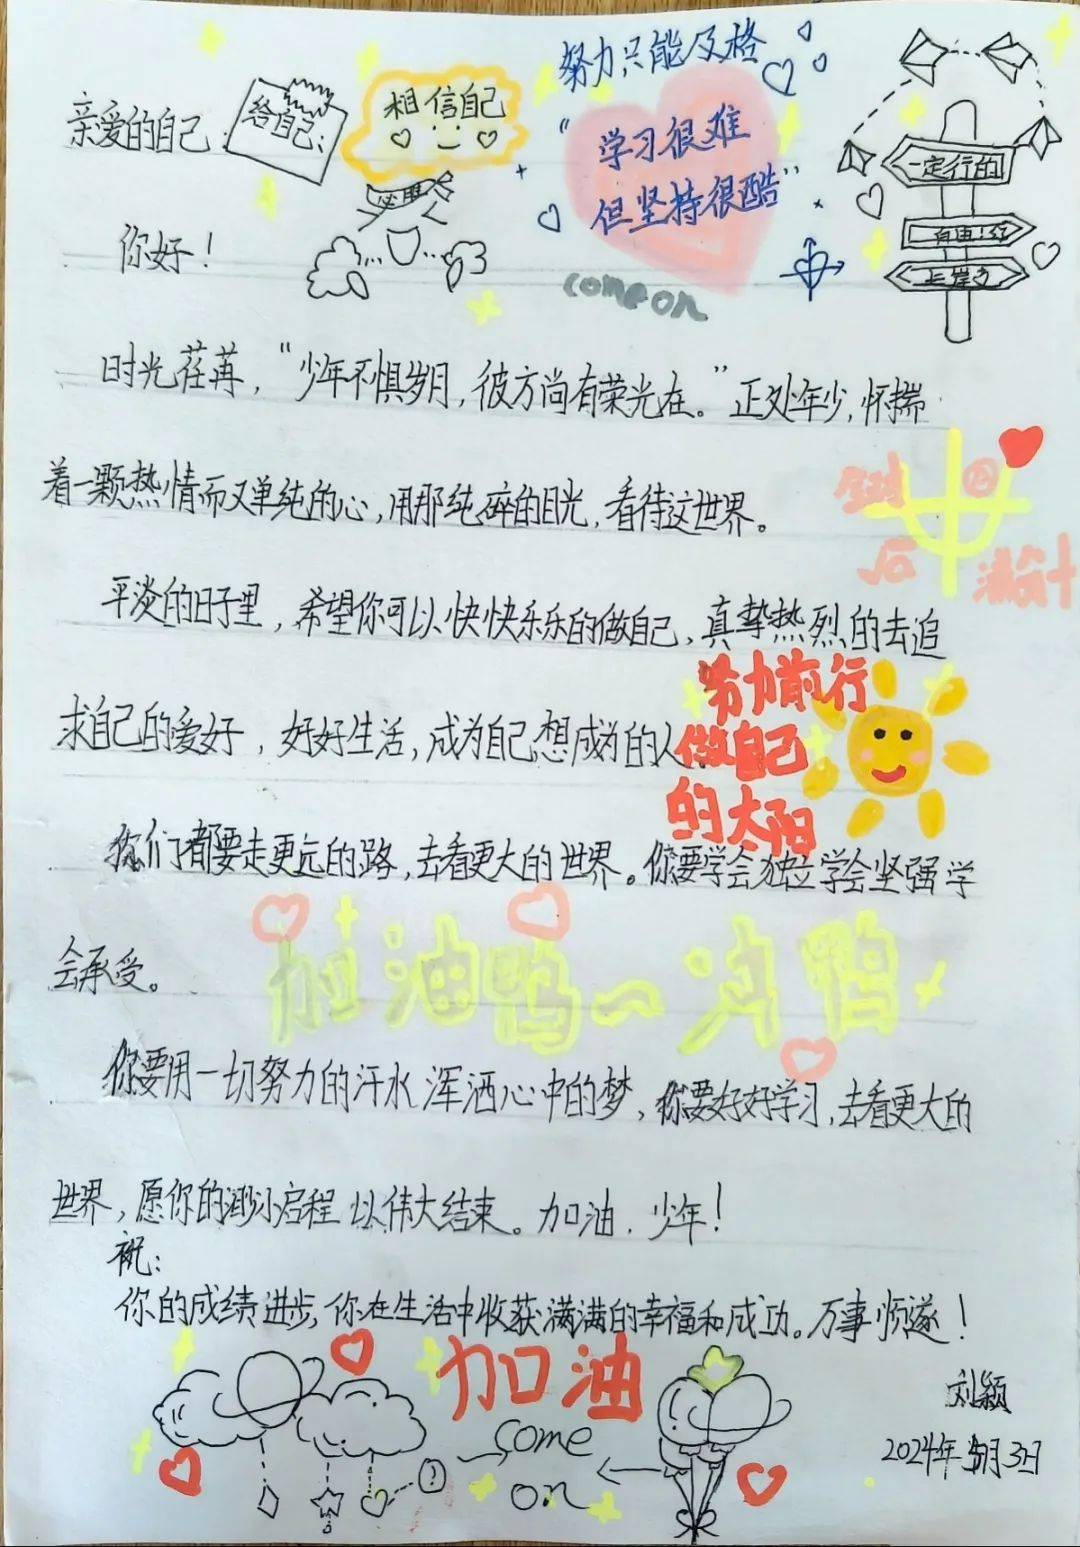 努力只能及格
亲爱的自己:
给自己:
相信自己
"学习很难
但坚持很酷"
必胜
come on
一定行的
你好!
时光荏苒,"少年不惧岁月,彼方尚有荣光在。"正处年少,怀揣
着一颗热情而又单纯的心,用那纯碎的目光,看待这世界。
平淡的日子里,希望你可以快快乐乐的做自己,真挚热烈的去追
求自己的爱好,好好生活,成为自己想成为的人
努力前行
做自己
的太阳
你们都要走更远的路,去看更大的世界。你要学会独立学会坚强学
会承受。
加油鸭~冲鸭
你要用一切努力的汗水浑洒心中的梦,你要好好学习,去看更大的
世界,愿你的渺小启程 以伟大结束。加油.少年!
祝:
你的成绩进步,你在生活中收获满满的幸福和成功。万事顺遂!
加油
come
on
刘颖
2024年5月3日